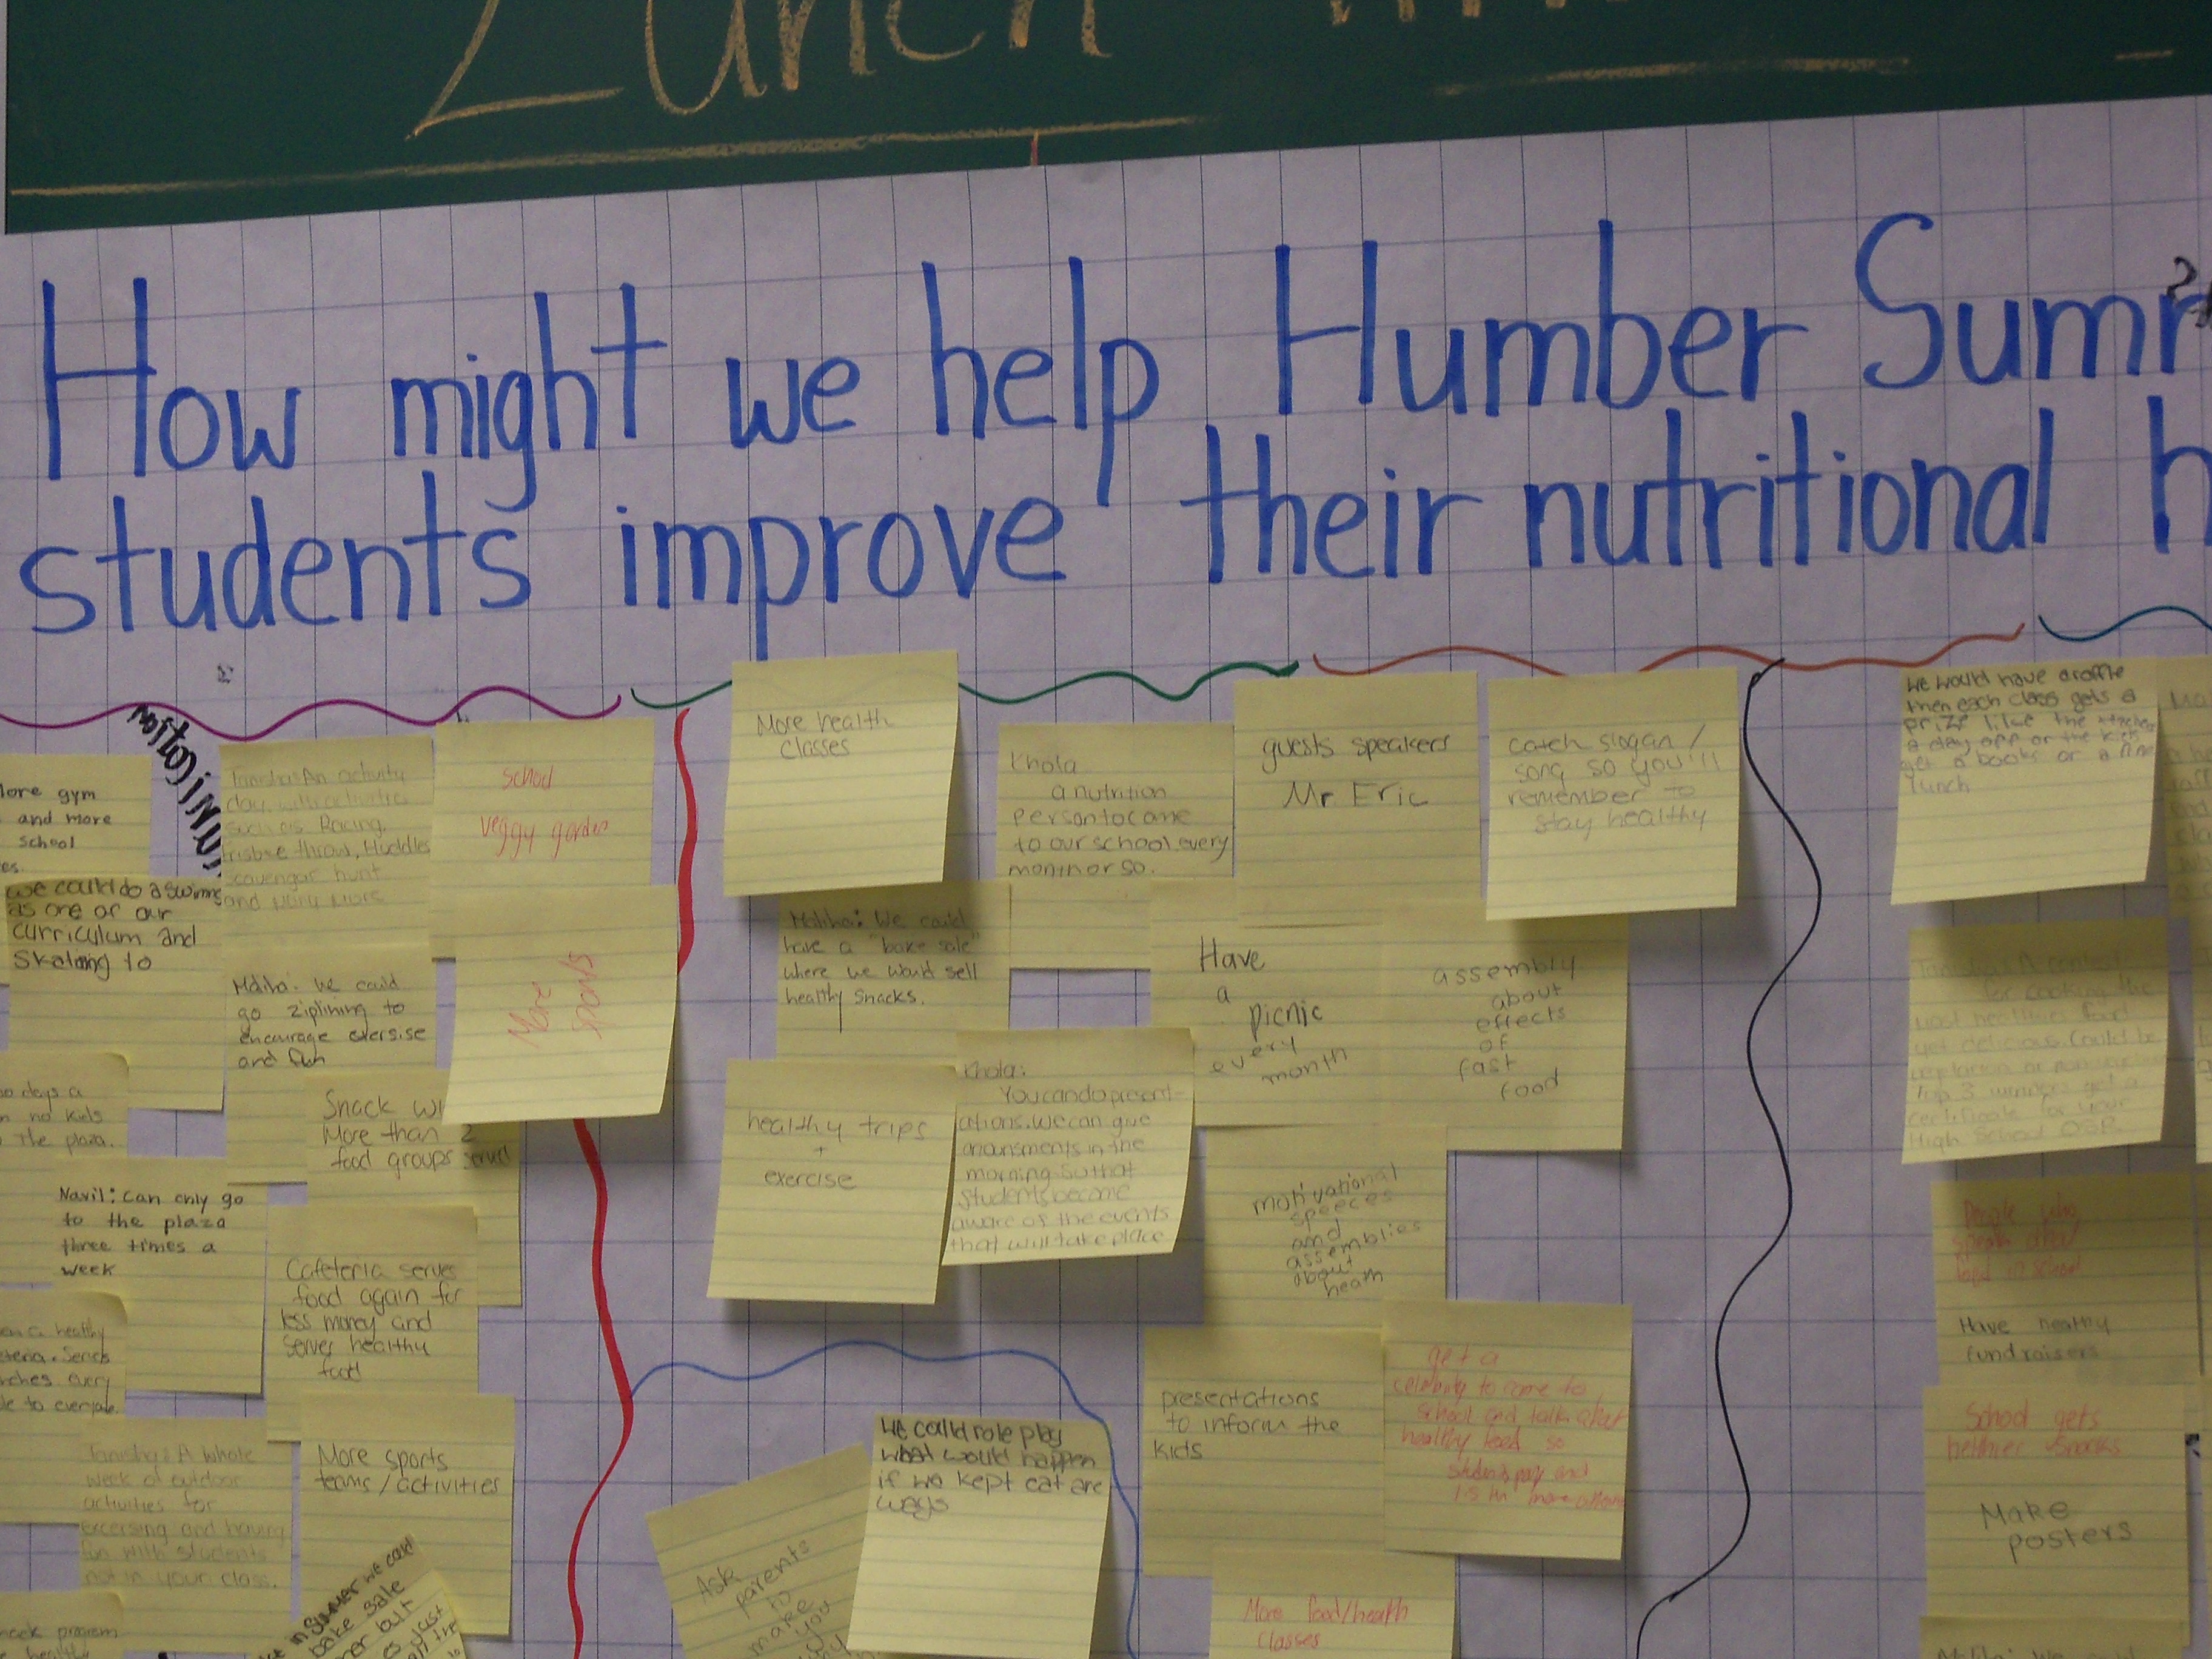 Lunch
How might we help Humber
students improve their nutritional
gym
and more
school
we could do a
as one of our
curriculum and
Skating to
days a
no kids
The plaza.
Navil: Can only go
to the plaza
three times a
week
healthy
every
to everyone.
Tanisha: A whole
week of outdoor
activities for
excersing and having
fun with students
not in your class.
Tanisha: An activity
day, with activities
such as Racing,
frisbee throw, Huddles
scavenger hunt
and more
Maliha: We could
go ziplining to
encourage exersise
and fun
Snack
More than 2
food groups served
Cafeteria serves
food again for
less money and
serves healthy
food
More sports
teams/activities
in Summer we could
bake sale
but
just
school
veggy garden
More
sports
More health
classes
Maliha: We could
have a "bake sale"
where we would sell
healthy snacks.
healthy trips
+
exercise
Khola
a nutrition
person to come
to our school every
month or so.
Khola:
You can do present-
ations. We can give
anounsments in the
morning so that
students become
aware of the events
that will take place
guests speakers
Mr Eric
Have
a
picnic
every
month
catch slogan /
song so you'll
remember to
stay healthy
assembly
about
effects
of
fast
food
motivational
speeces
and
assemblies
about
heath
presentations
to inform the
kids
get a
celebrity to come to
school and talk about
healthy food so
students pay and
more
More food/health
classes
Ask
parents
to
make
you
We could role play
what would happen
if we kept eat are
ways
We would have a raffle
then each class gets a
prize like the teacher
a day off or the kids
get a books or a
lunch
Tanisha: A contest
for cooking the
most healthiest food
yet delicious. Could be
vegetarian or non
Top 3 winners get a
certificate for your
High School OSR.
People
food school
Have healthy
fundraisers
School gets
helthier snacks
Make
posters
Maliha: We could